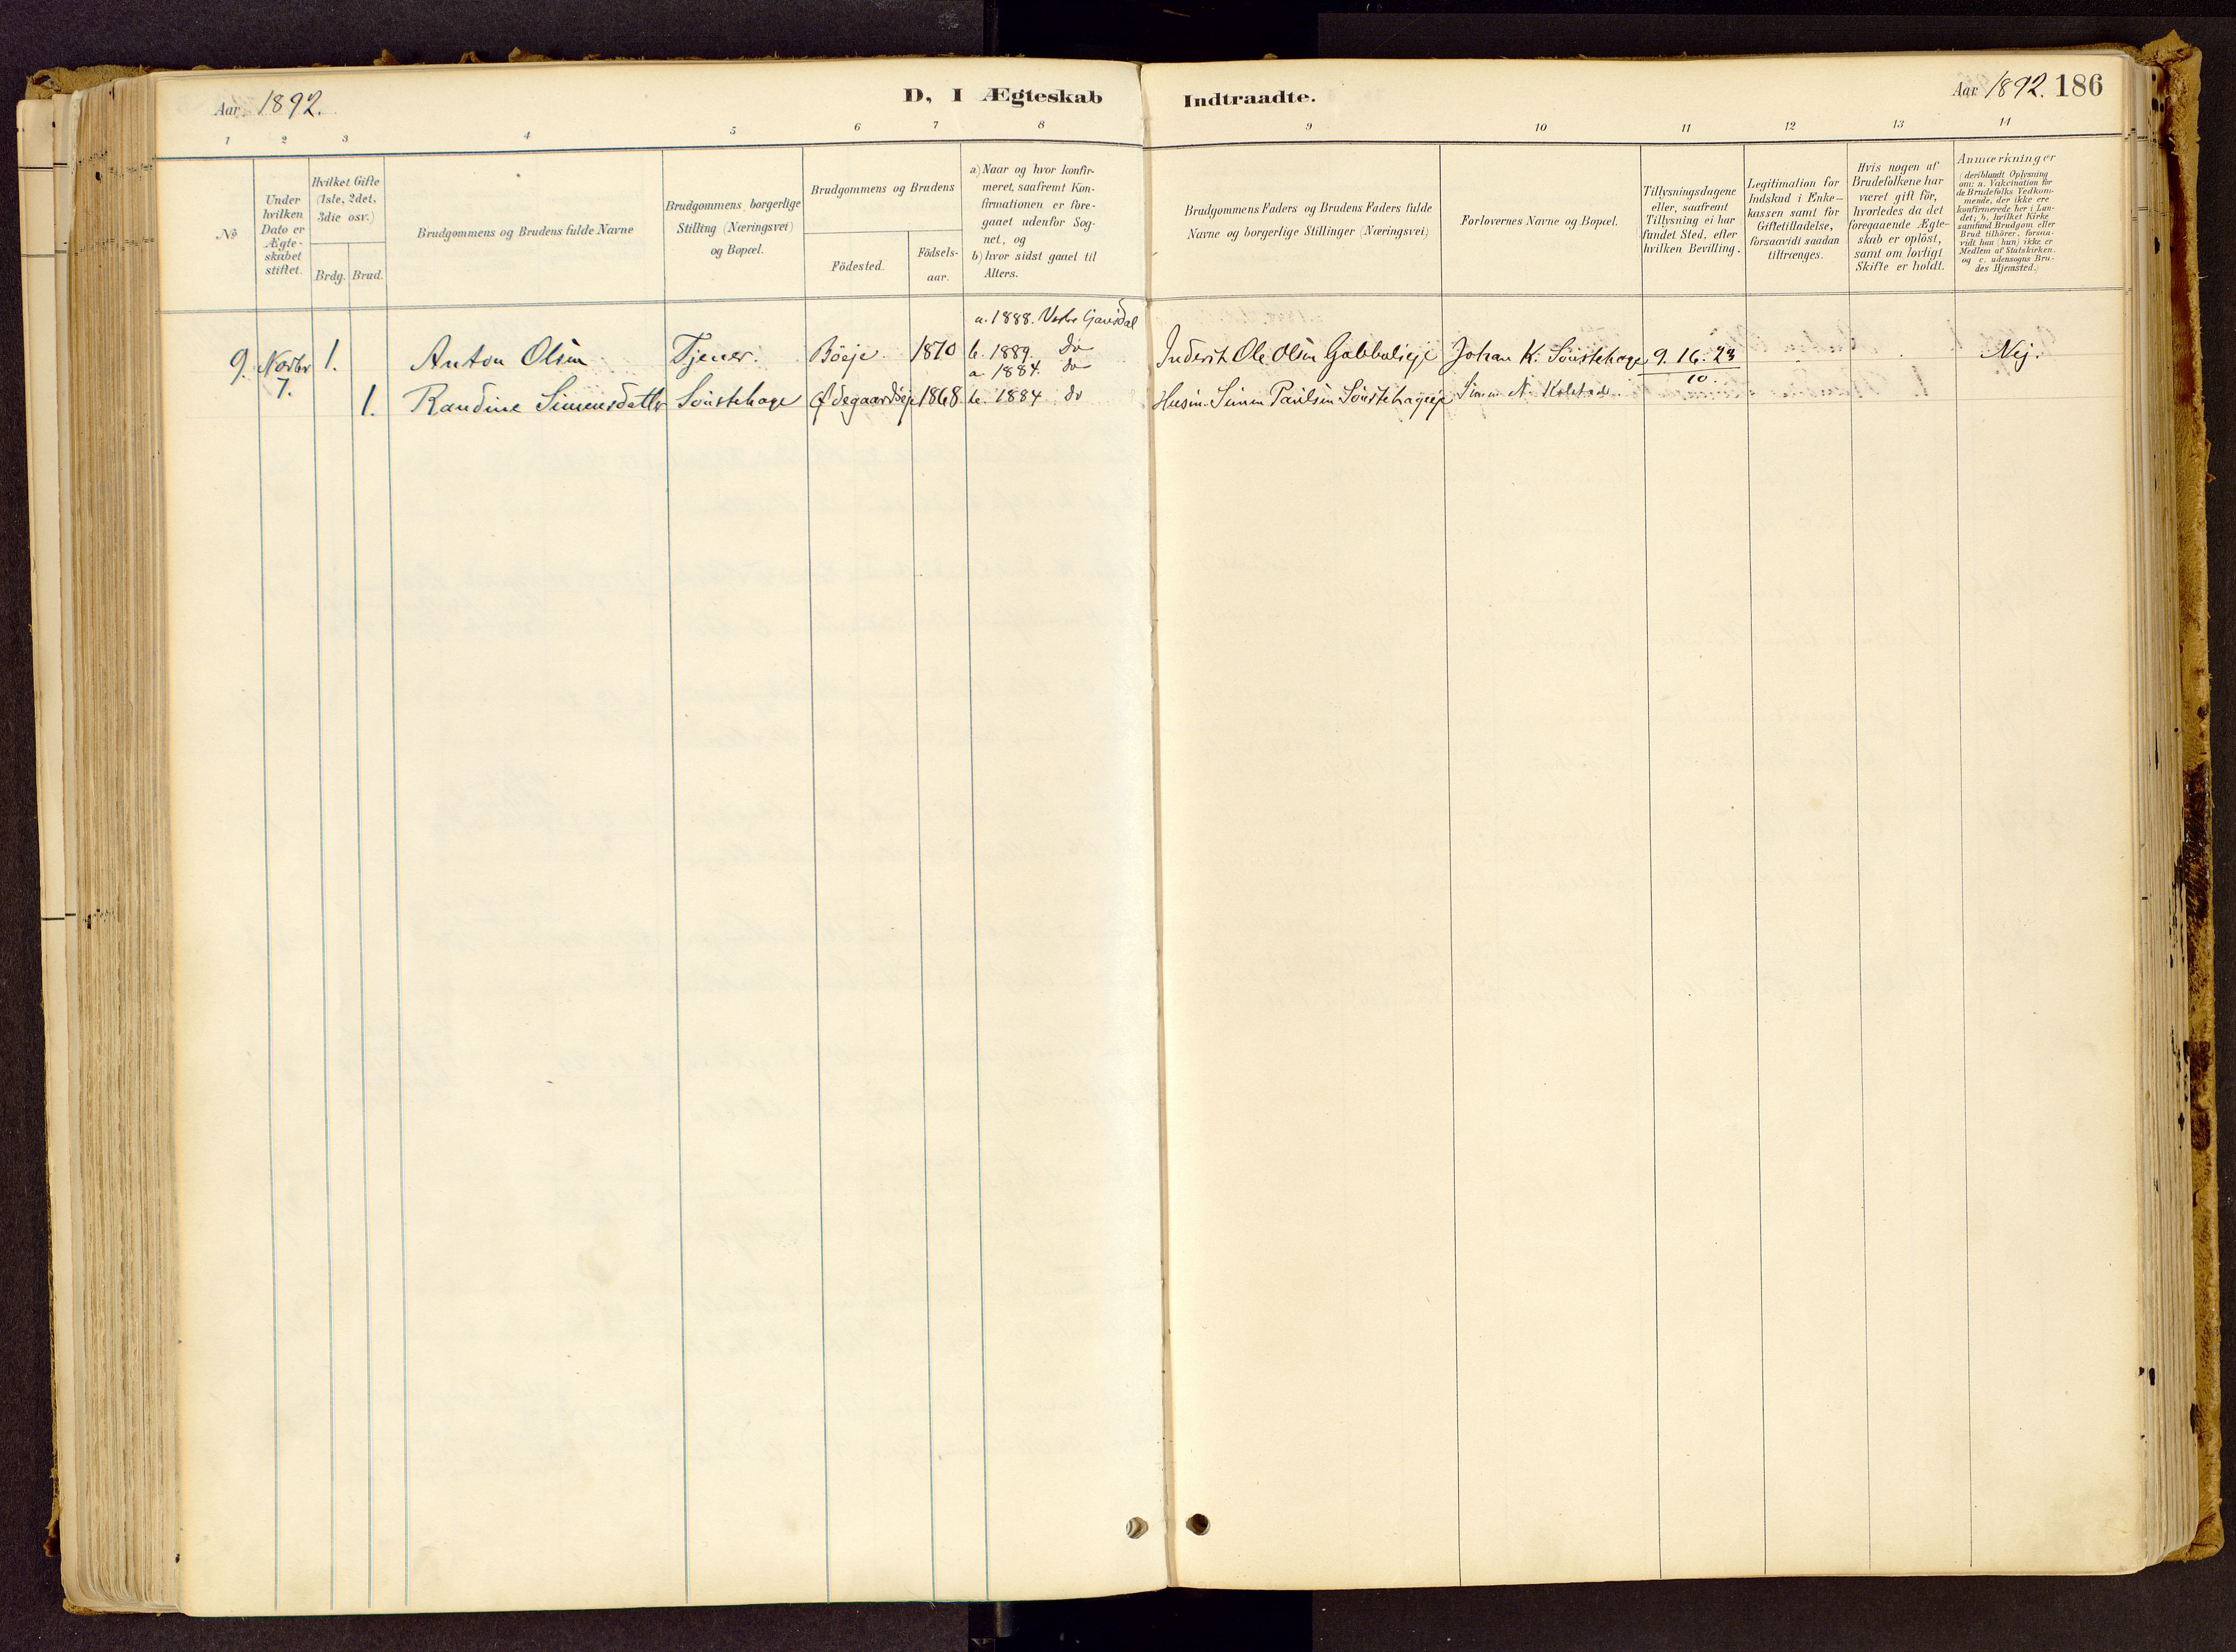 Aar 1892. D, I Ægteskab Indtraadte. Aar 1892. 186
1 2 3 4 5 6 7 8 9 10 11 12 13 14
No
Under hvilken Dato er Ægte-skabet stiftet.
Hvilket Gifte (1ste, 2det, 3die osv.)
Brdg. Brud.
Brudgommens og Brudens fulde Navne
Brudgommens borgerlige Stilling (Næringsvei) og Bopæl.
Brudgommens og Brudens
Födested. Födsels-aar.
a) Naar og hvor konfir-
meret, saafremt Kon-
firmationen er fore-
gaaet udenfor Sog-
net, og
b) hvor sidst gaaet til
Alters.
Brudgommens Faders og Brudens Faders fulde
Navne og borgerlige Stillinger (Næringsvei)
Forlovernes Navne og Bopæl.
Tillysningsdagene
eller, saafremt
Tillysning ei har
fundet Sted, efter
hvilken Bevilling.
Legitimation for
Indskud i Enke-
kassen samt for
Giftetilladelse,
forsaavidt saadan
tiltrænges.
Hvis nogen af
Brudefolkene har
været gift för,
hvorledes da det
foregaaende Ægte-
skab er oplöst,
samt om lovligt
Skifte er holdt.
Anmærkninger
(deriblandt Oplysning
om: a. Vakcination for
de Brudefolks Vedkom-
mende, der ikke ere
konfirmerede her i Lan-
det; b. hvilket Kirke
samfund Brudgom eller
Brud tilhörer, forsaa-
vidt han (hun) ikke er
Medlem af Statskirken.
og c. udensogns Bru-
des Hjemsted.)
a. 1888. Vestre Gausdal
9. Novbr 1. Anton Olsen Tjener. Böeje. 1870 b. 1889. do Inderst Ole Olsen Johan K. Sönstehage 9. 16. 23 Nej.
7. a. 1884. do 10.
1. Randine Simensdatter Sönstehage Ødegaardseje 1868 b. 1884 do Husm. Simen Paulsen Sönstehageeje Simen N. Kolstad.